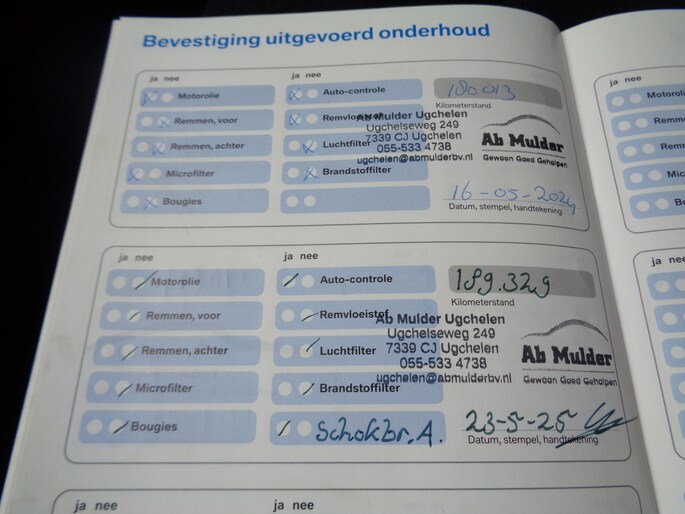 Bevestiging uitgevoerd onderhoud
ja nee
ja nee
Motorolie
Auto-controle
180013
Kilometerstand
Remmen, voor
Remvloeistof
Remmen, achter
Luchtfilter
Microfilter
Brandstoffilter
Bougies
Ab Mulder Ugchelen
Ugchelseweg 249
7339 CJ Ugchelen
055-533 4738
ugchelen@abmulderbv.nl
Ab Mulder
Gewoon Goed Geholpen
16-05-2024
Datum, stempel, handtekening
ja nee
ja nee
Motorolie
Auto-controle
189.329
Kilometerstand
Remmen, voor
Remvloeistof
Remmen, achter
Luchtfilter
Microfilter
Brandstoffilter
Bougies
Schokbr. A.
Ab Mulder Ugchelen
Ugchelseweg 249
7339 CJ Ugchelen
055-533 4738
ugchelen@abmulderbv.nl
Ab Mulder
Gewoon Goed Geholpen
23-5-25
Datum, stempel, handtekening
ja nee
ja nee
ja nee
Motorol
Remme
Remm
Mic
Bo
ja nee